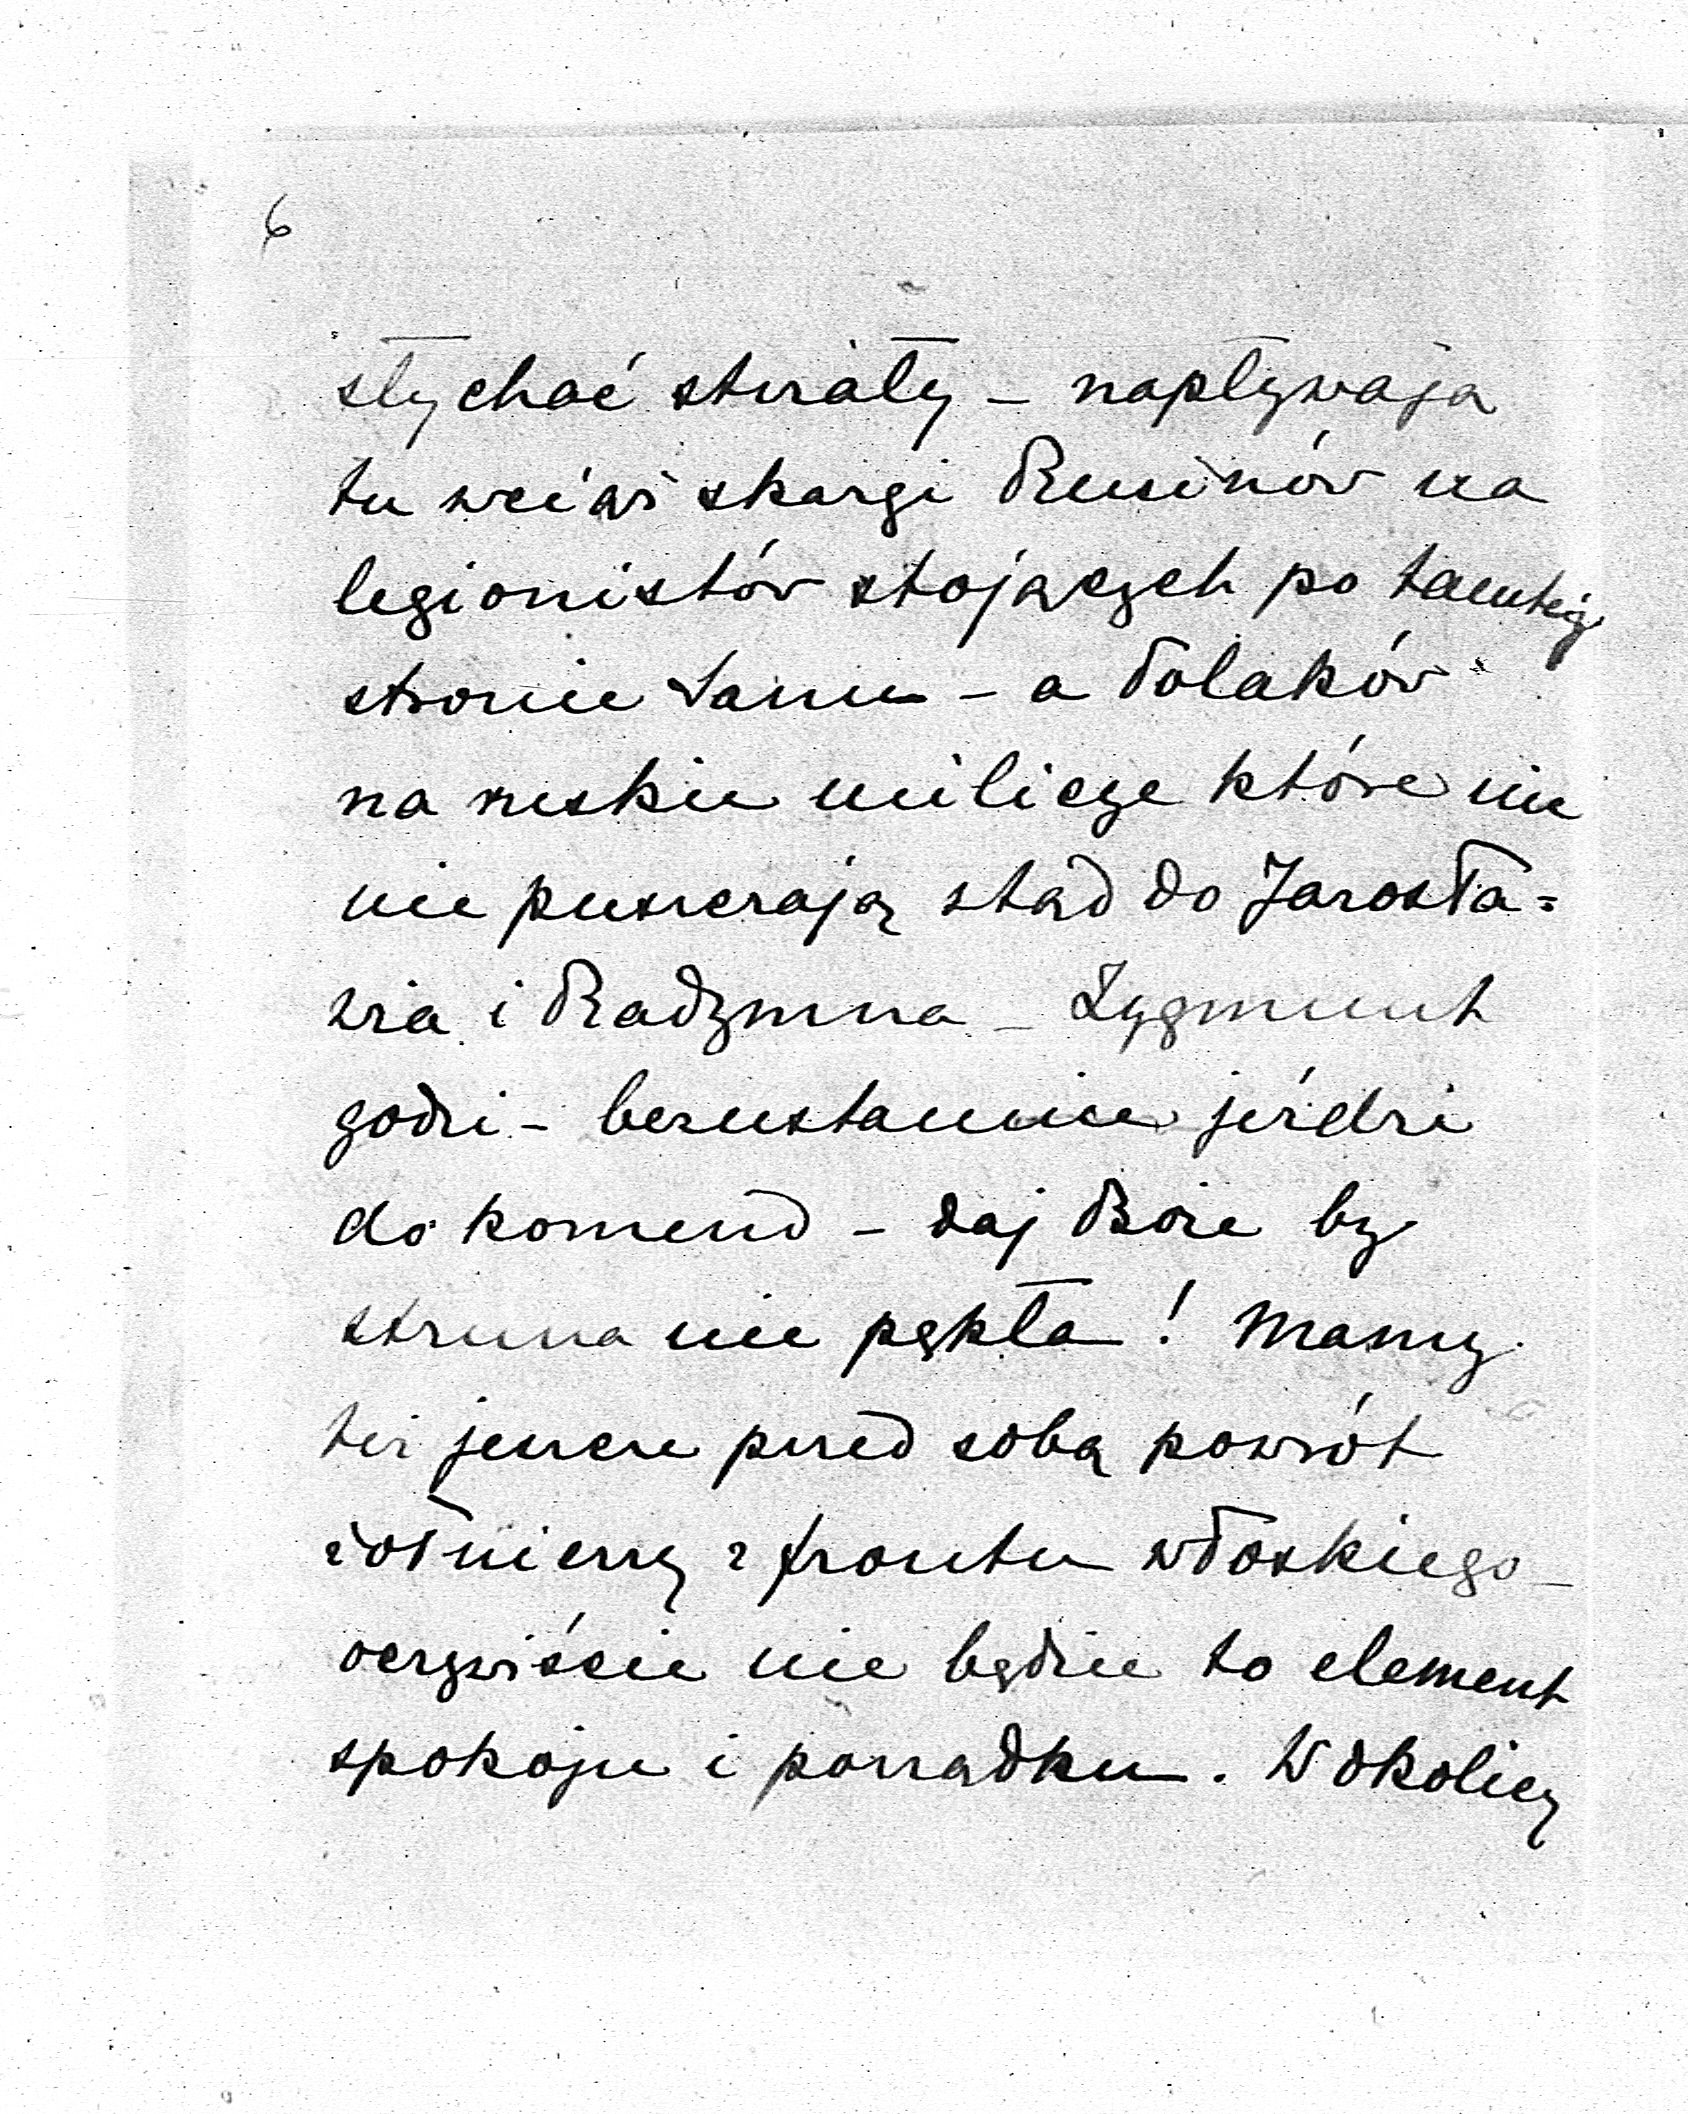 6
słychać strzały – napływają
tu wciąż skargi Rusinów na
legionistów stojących po tamtej
stronie Sanu – a Polaków
na ruskie milicye które nie
nie puszczają stąd do Jarosła=
wia i Radymna – Zygmunt
godzi – bezustannie jeździ
do komend – daj Boże by
struna nie pękła! Mamy
też jeszcze przed sobą powrót
żołnierzy z frontu włoskiego –
oczywiście nie będzie to element
spokoju i porządku. W okolicy